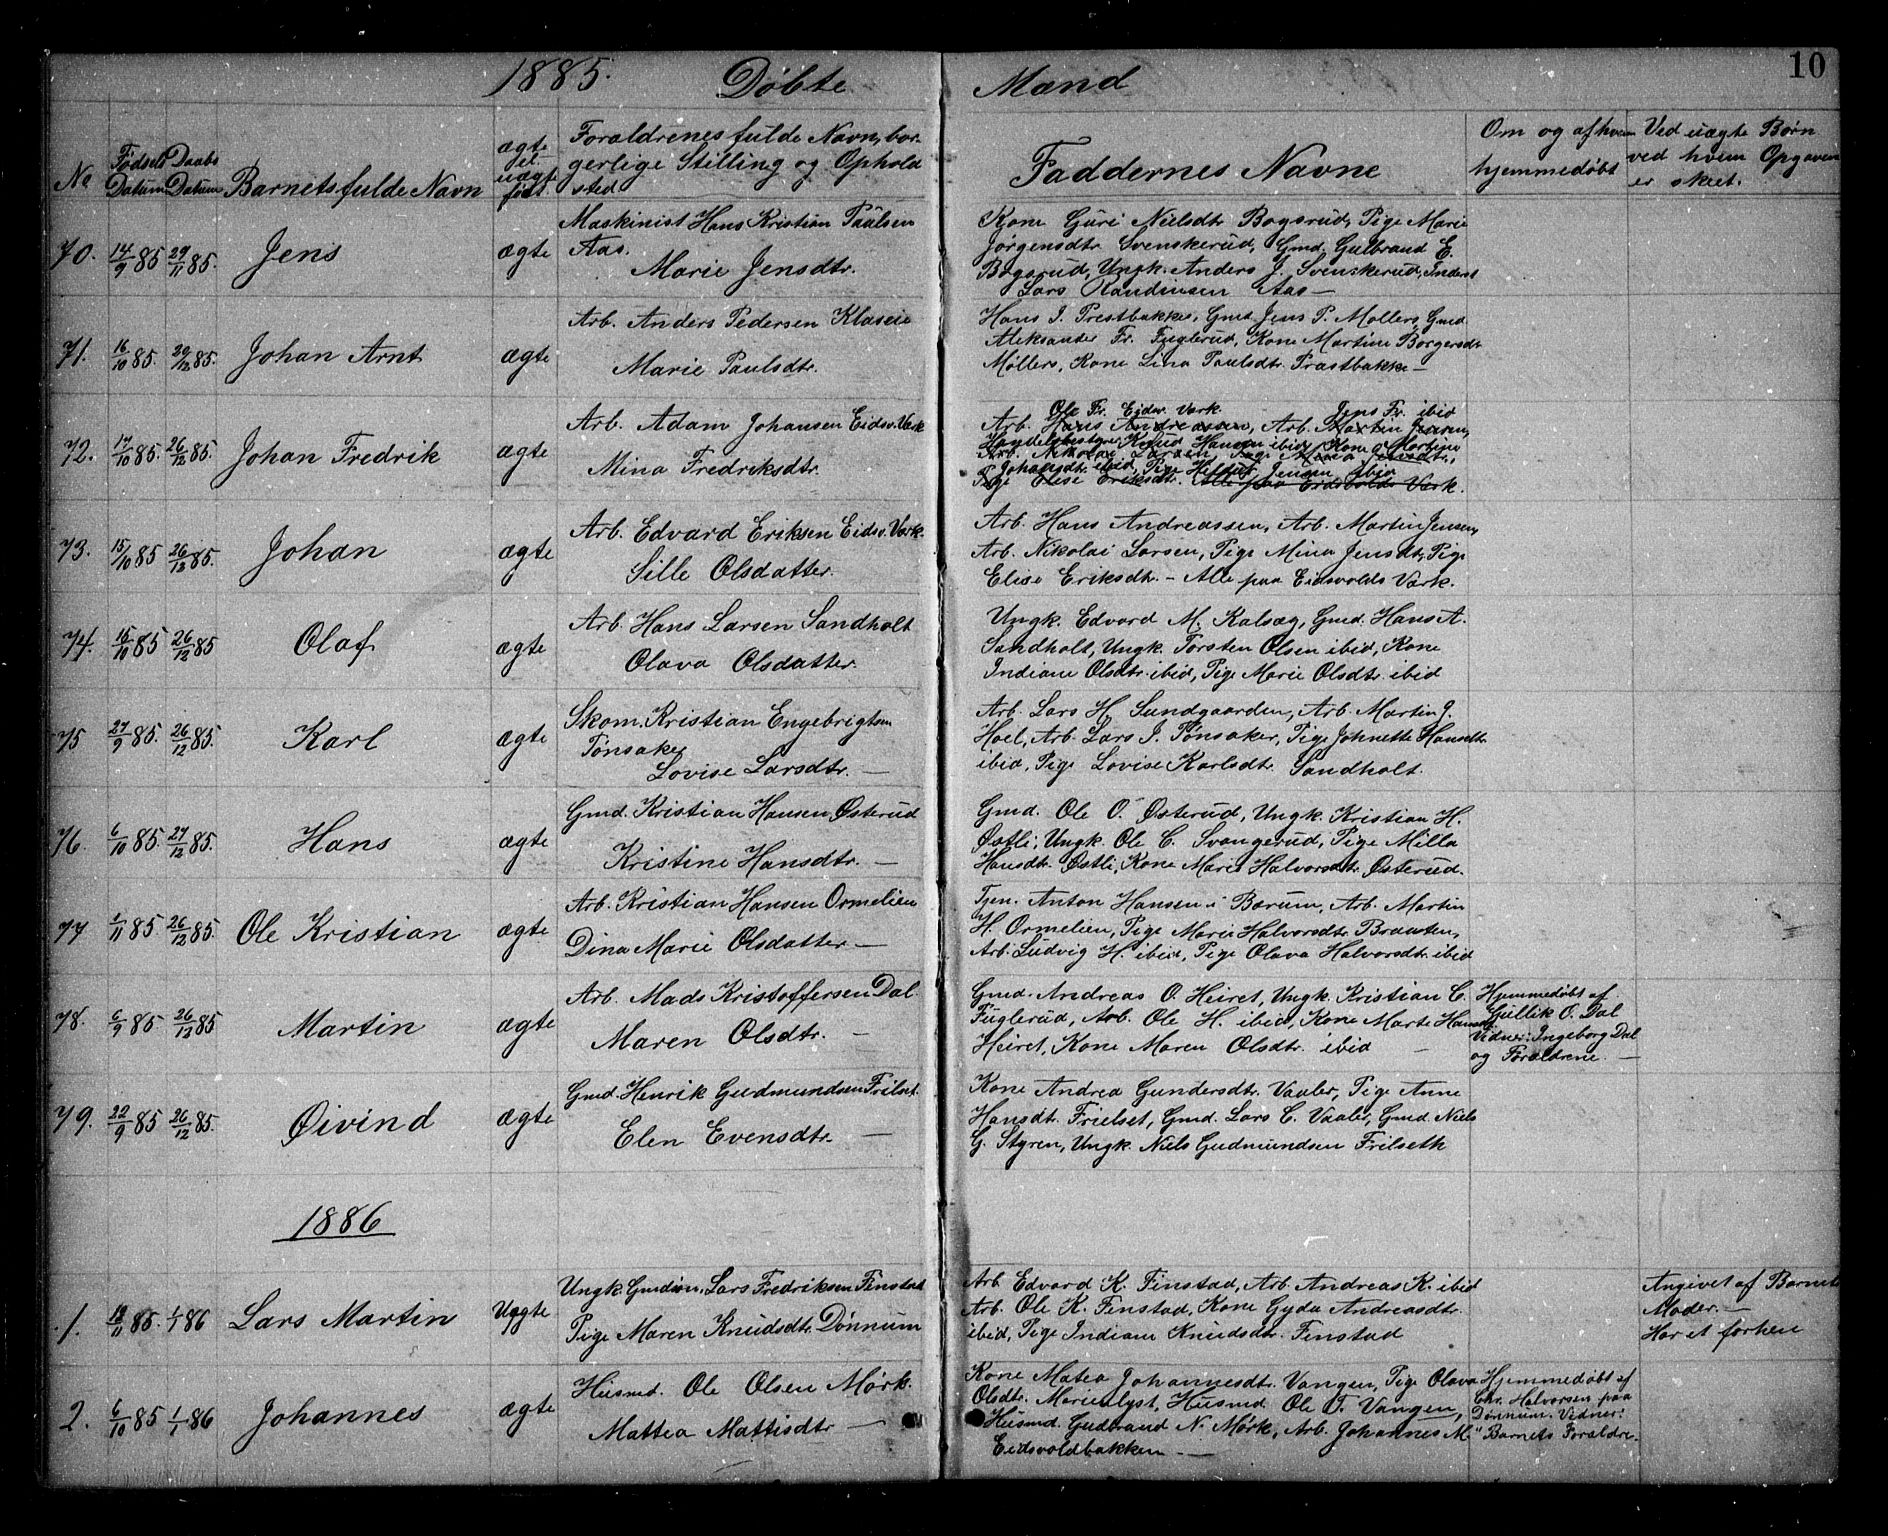 1885. Døbte Mænd 10
No
Fødsels Datum
Daabs Datum
Barnets fulde Navn
ægte el. uægte født
Forældrenes fulde Navn, bor-
gerlige Stilling og Ophold
sted
Faddernes Navne
Om og af hvem
hjemmedøbt
Ved uægte Børn
ved hvem Opgaven
er skeet.
70. 14/9 85 29/11 85. Jens ægte
Maskinist Hans Kristian Paulsen
Aas.
Marie Jensdtr.
Kone Guri Nielsdtr Bogsrud, Pige Marie
Jørgensdtr Svenskerud, Gmd. Gulbrand E.
Bogsrud, Ungk. Anders J. Svenskerud, Inderst
Lars Aas —
71. 16/10 85. 20/12 85. Johan Arnt ægte
Arb. Anders Pedersen
Marie Paulsdtr.
Hans J. Præstbakke, Gmd Jens P. Møllers, Gmd
Aleksander Fr. Fuglerud, Kone Martine Borgersdtr
Møllers, Kone Lina Paulsdtr. Præstbakke —
72. 17/10 85. 26/12 85. Johan Fredrik ægte
Arb. Adam Johansen Eidsv. Værk
Mina Fredriksdtr.
Ole Fr. Eidsv. Værk. Jens Fr. ibid
Arb. Hans Andreassen, Arb. Martin Jensen,
Handelsbestyrer Knud Hansen ibid, Kone Martine
Arb. Nikolai Larsen, Pige Mina Jensdtr.,
Johansdtr ibid, Pige Jensen ibid
Pige Elise Eriksdtr. Alle paa Eidsvolds Værk.
73. 15/10 85 26/12 85. Johan ægte
Arb. Edvard Eriksen Eidsv. Værk.
Sille Olsdatter.
Arb. Hans Andreassen, Arb. Martin Jensen,
Arb. Nikolai Larsen, Pige Mina Jensdtr, Pige
Elise Eriksdtr. – Alle paa Eidsvolds Værk.
74. 15/10 85 26/12 85 Olaf ægte
Arb. Hans Larsen Sandholt
Olava Olsdatter.
Ungk. Edvard M. Kalsæg, Gmd. Hans A.
Sandholt, Ungk. Torsten Olsen ibid, Kone
Indiane Olsdtr. ibid, Pige Marie Olsdtr. ibid
75 27/9 85. 26/12 85. Karl ægte
Skom. Kristian Engebrigtsen
Tønsaker
Lovise Larsdtr. —
Arb. Lars H. Sundgaarden, Arb. Martin J.
Hoel, Arb. Lars J. Tønsaker, Pige Johnette Hansdtr
ibid, Pige Lovise Karlsdtr. Sandholt.
76. 6/10 85. 27/12 85. Hans ægte
Gmd. Kristian Hansen Østerud
Kristine Hansdtr. —
Gmd. Ole O. Østerud, Ungk. Kristian H.
Østli, Ungk. Ole C. Svangerud, Pige Milla
Hansdtr. Østli, Kone Marie Halvorsdtr. Østerud.
77 1/11 85 26/12 85. Ole Kristian ægte
Arb. Kristian Hansen Ormelien
Dina Marie Olsdatter —
Tjen. Anton Hansen i Bærum, Arb. Martin
H. Ormelien, Pige Marie Halvorsdtr. Braaten,
Arb. Ludvig H. ibid, Pige Olava Halvorsdtr. ibid
78. 6/9 85 26/12 85 Martin ægte
Arb. Mads Kristoffersen Dal.
Maren Olsdtr. —
Gmd. Andreas O. Heiret, Ungk. Kristian C.
Fuglerud, Arb. Ole H. ibid, Kone Marte Hansdtr.
Heiret, Kone Maren Olsdtr. ibid —
Hjemmedøbt af
Gullik O. Dal
Vidner: Ingeborg Dal
og Forældrene. —
79. 22/9 85 26/12 85. Øivind ægte
Gmd. Henrik Gudmundsen Frilset.
Elen Evensdtr. —
Kone Andrea Gundersdtr. Vaaler, Pige Anne
Hansdt. Frielset, Gmd. Lars C. Vaaler, Gmd. Niels
G. Styren, Ungk. Niels Gudmundsen Frilseth
1886
1. 85. 1/1 86 Lars Martin Uægte
Ungk. Lars Fredriksen Finstad
Pige Maren Knudsdtr. Dønnum
Arb Edvard K. Finstad, Arb Andreas K. ibid
Arb. Ole K. Finstad, Kone Gyda Andreasdtr.
ibid, Pige Indiane Knudsdtr. Finstad
Angivet af Barnets
Moder. —
Har et forhen
2. 6/10 85 1/1 86 Johannes ægte
Husmd. Ole Olsen Mørk.
Mattea Mattisdtr —
Kone Matea Johannesdtr. Vangen, Pige Olava
Olsdtr. Marienlyst, Husmd Ole T. Vangen,
Husmd. Gudbrand N. Mørk, Arb. Johannes M.
Eidsvoldbakken —
Hjemmedøbt af
Chr. Halvorsen paa
Dønnum. Vidner:
Barnets Forældre.